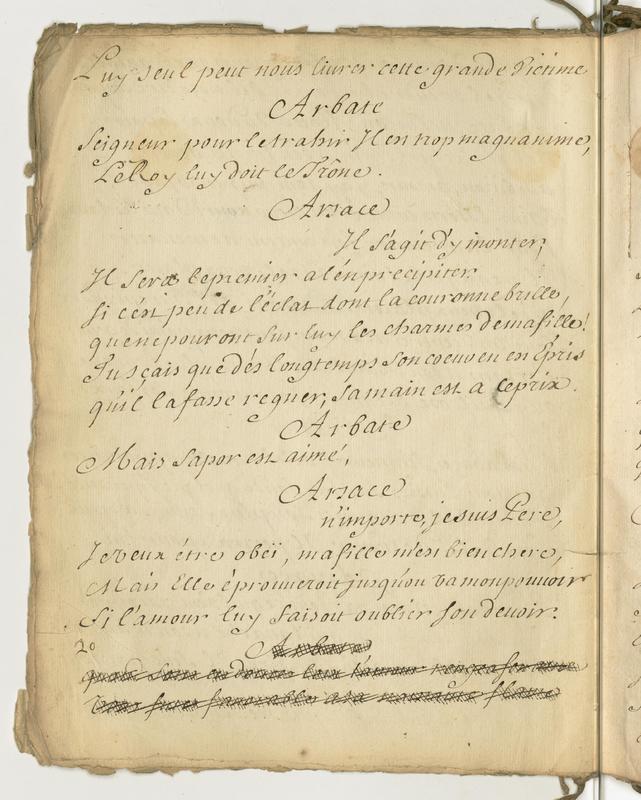 Luy seul peut nous livrer cette grande Victime
Arbate
Seigneur pour le trahir Il en trop magnanime,
Le Roy luy doit le Trône.
Arsace
Il s'agit d'y monter;
Il sera le premier a l'en precipiter.
Si c'est peu de l'éclat dont la couronne brille,
que ne pouront sur luy les charmes de ma fille!
Tu sçais que dés longtemps son coeur en en Epris
qu'il la fasse regner, sa main est a ce prix.
Arbate
Mais Sapor est aimé,
Arsace
n'importe, je suis Pere,
Je veux étre obeï, ma fille m'en bien chere,
Mais Elle éprouveroit jusqu'ou va mon pouvoir
Si l'amour luy faisoit oublier son devoir.
20
Arbate